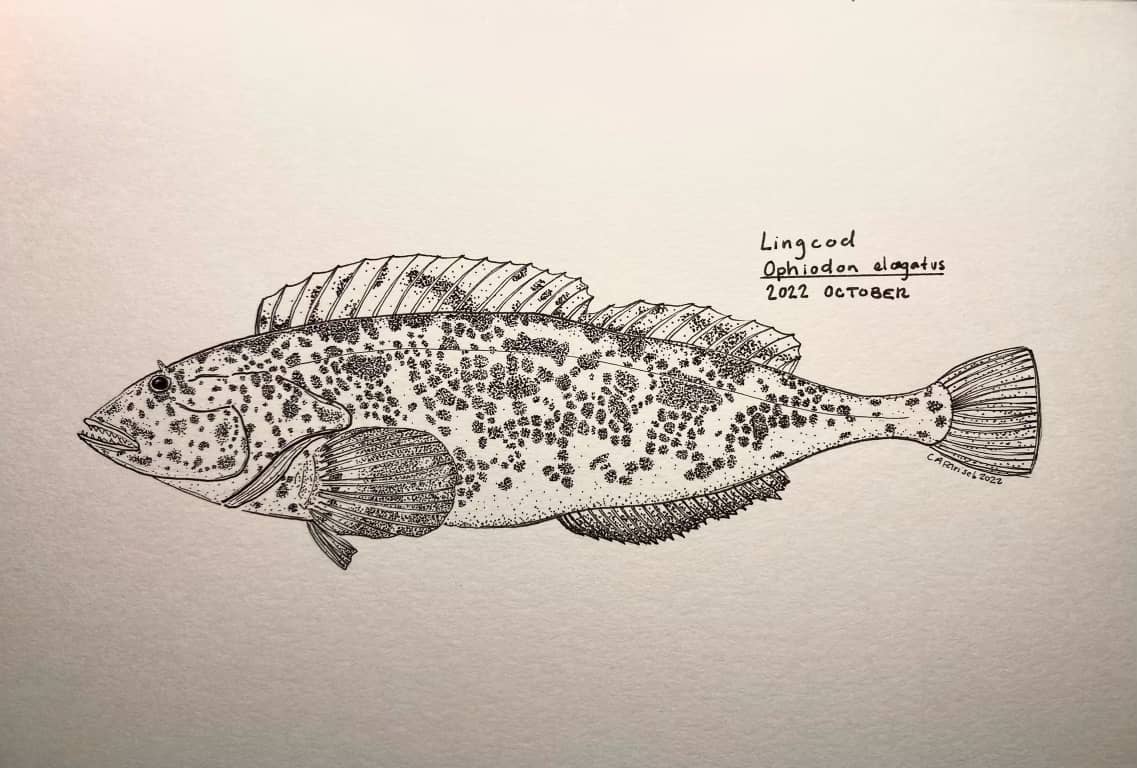 Lingcod
Ophiodon elogatus
2022 OCTOBER
2022